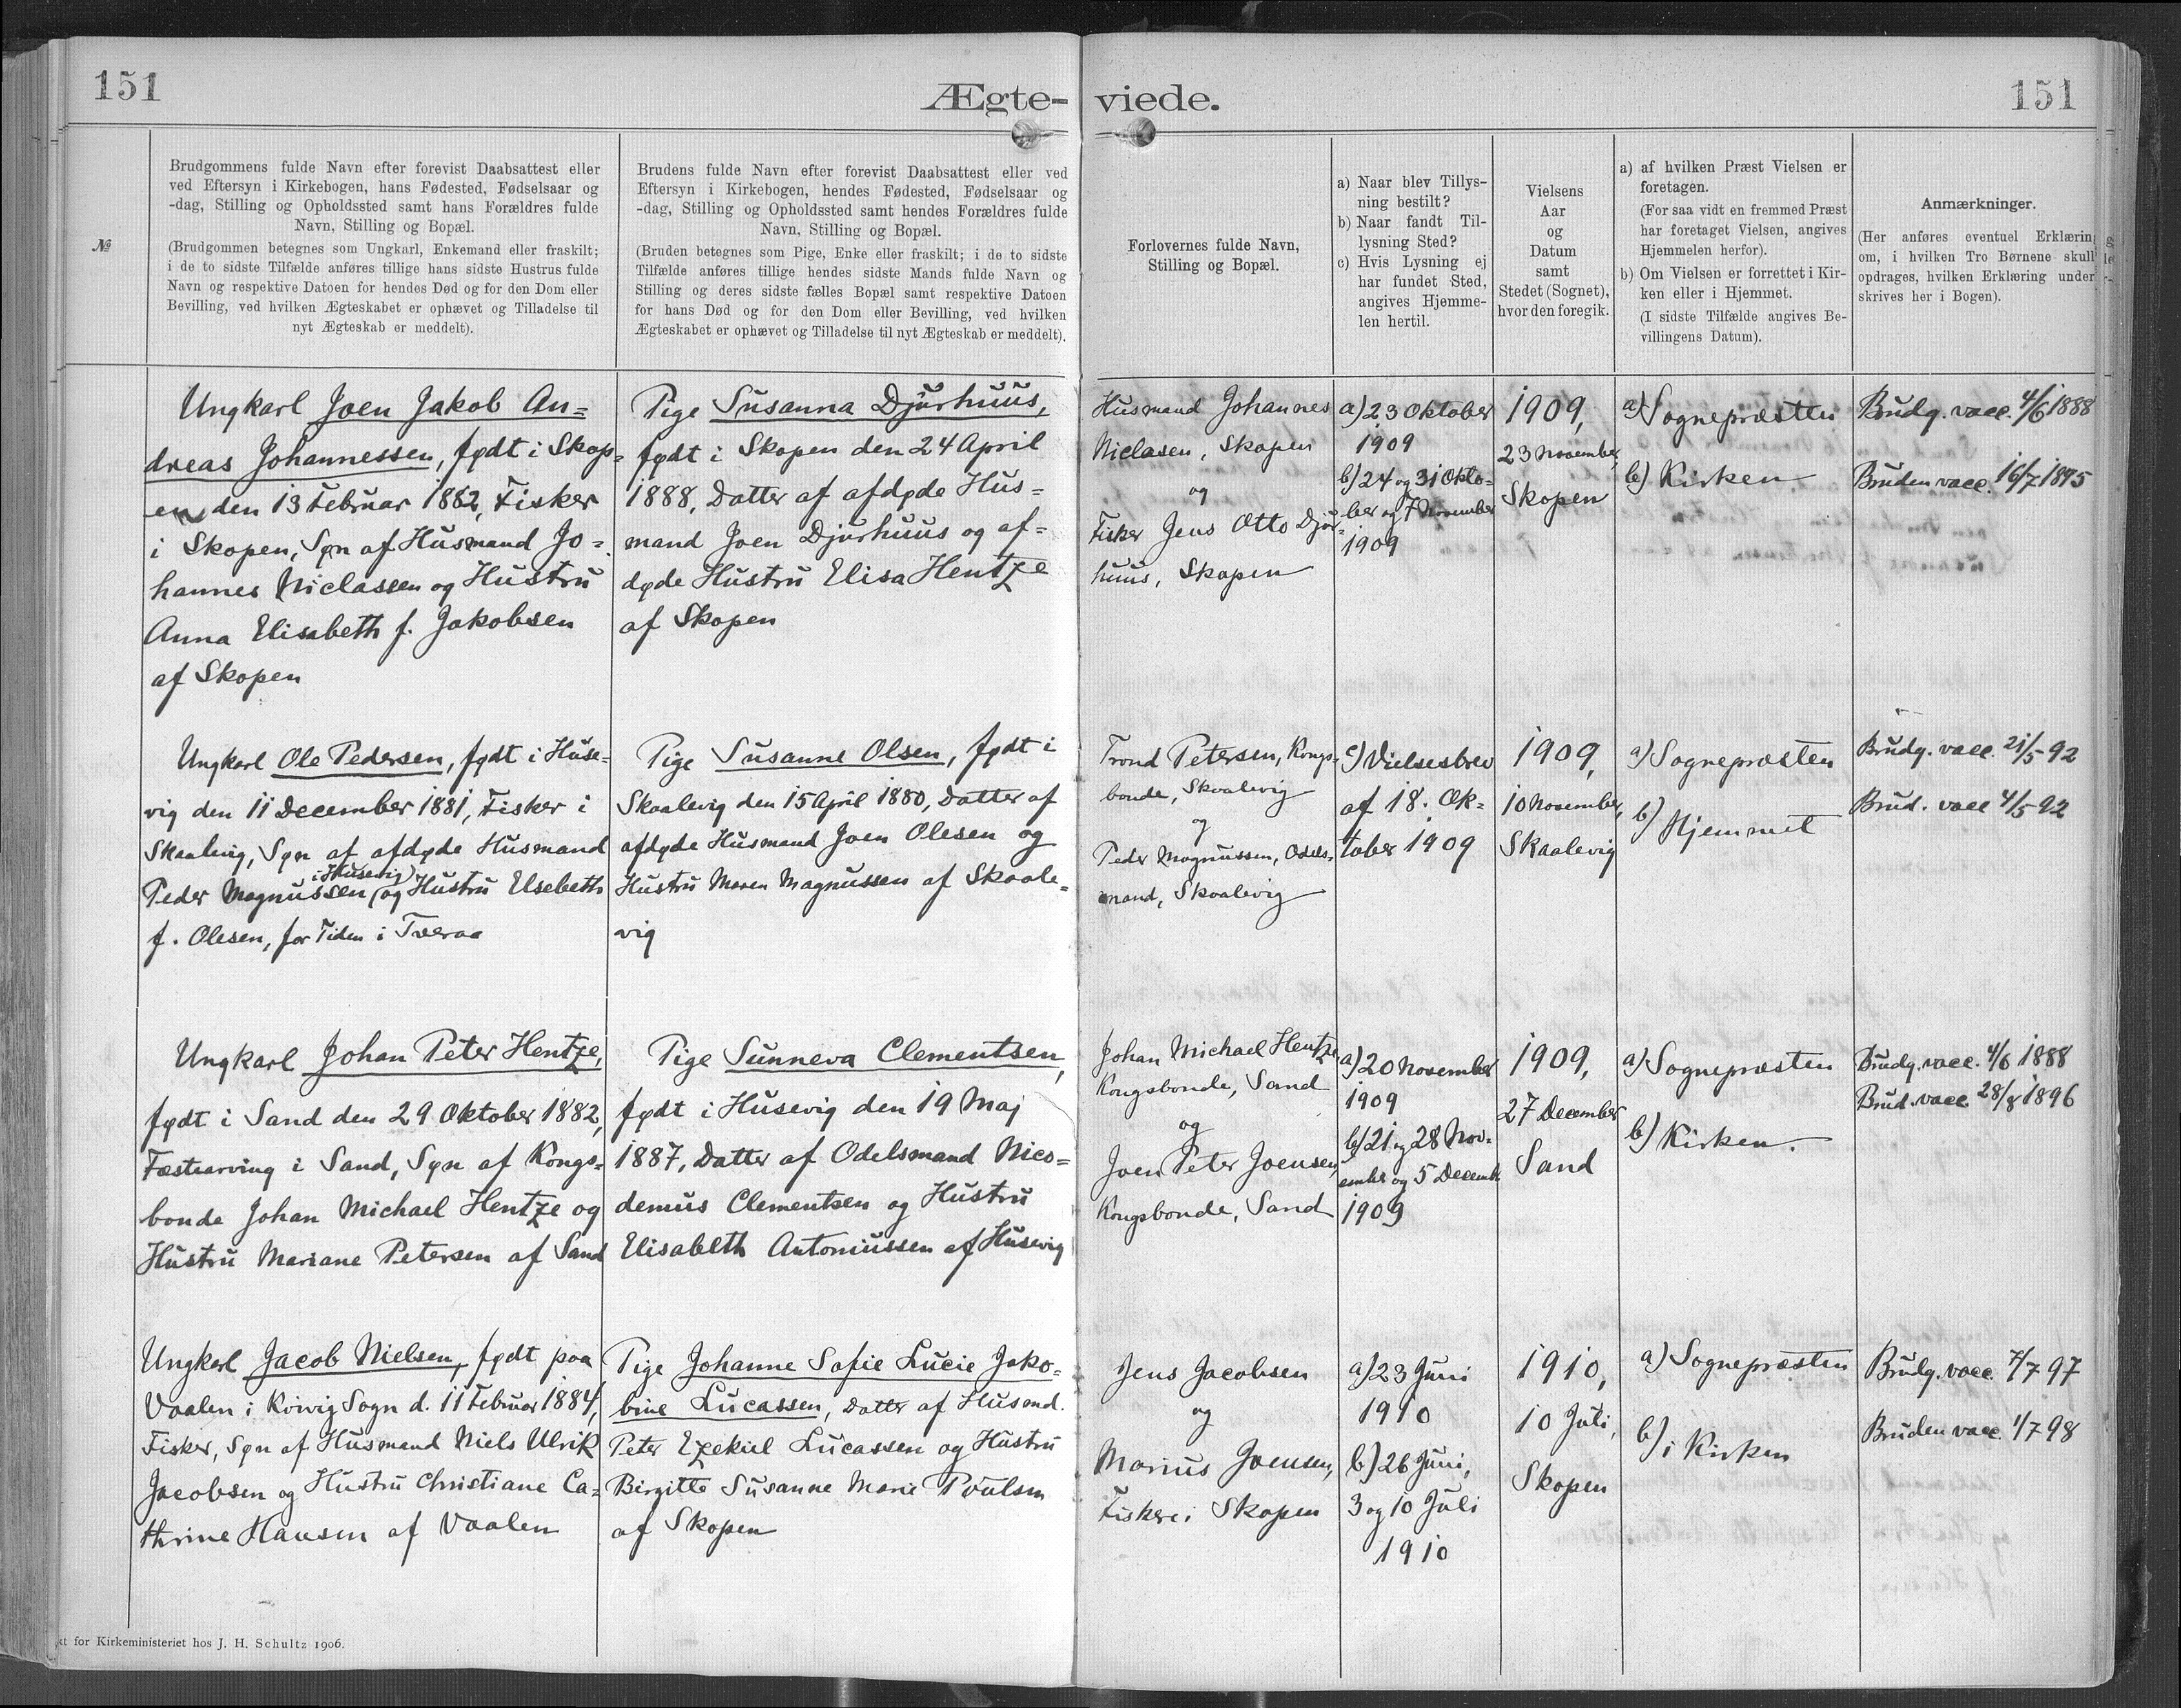 151
Ægte-
viede.
151
№
Brudgommens fulde Navn efter forevist Daabsattest eller
ved Eftersyn i Kirkebogen, hans Fødested, Fødselsaar og
-dag, Stilling og Opholdssted samt hans Forældres fulde
Navn, Stilling og Bopæl.
(Brudgommen betegnes som Ungkarl, Enkemand eller fraskilt;
i de to sidste Tilfælde anføres tillige hans sidste Hustrus fulde
Navn og respektive Datoen for hendes Død og for den Dom eller
Bevilling, ved hvilken Ægteskabet er ophævet og Tilladelse til
nyt Ægteskab er meddelt).
Brudens fulde Navn efter forevist Daabsattest eller ved
Eftersyn i Kirkebogen, hendes Fødested, Fødselsaar og
-dag, Stilling og Opholdssted samt hendes Forældres fulde
Navn, Stilling og Bopæl.
(Bruden betegnes som Pige, Enke eller fraskilt; i de to sidste
Tilfælde anføres tillige hendes sidste Mands fulde Navn og
Stilling og deres sidste fælles Bopæl samt respektive Datoen
for hans Død og for den Dom eller Bevilling, ved hvilken
Ægteskabet er ophævet og Tilladelse til nyt Ægteskab er meddelt).
Forlovernes fulde Navn,
Stilling og Bopæl.
a) Naar blev Tillys-
ning bestilt?
b) Naar fandt Til-
lysning Sted?
c) Hvis Lysning ej
har fundet Sted,
angives Hjemme-
len hertil.
Vielsens
Aar
og
Datum
samt
Stedet (Sognet),
hvor den foregik.
a) af hvilken Præst Vielsen er
foretagen.
(For saa vidt en fremmed Præst
har foretaget Vielsen, angives
Hjemmelen herfor).
b) Om Vielsen er forrettet i Kir-
ken eller i Hjemmet.
(I sidste Tilfælde angives Be-
villingens Datum).
Anmærkninger.
(Her anføres eventuel Erklæring
om, i hvilken Tro Børnene skull
opdrages, hvilken Erklæring under
skrives her i Bogen).
Ungkarl Joen Jakob An=
dreas Johannessen, født i Skop=
en den 13 Februar 1882, Fisker
i Skopen, Søn af Husmand Jo=
hannes Niclassen og Hustru
Anna Elisabeth f. Jakobsen
af Skopen
Pige Susanna Djurhuus,
født i Skopen den 24 April
1888, Datter af afdøde Hus=
mand Joen Djurhuus og af=
døde Hustru Elisa Hentze
af Skopen
Husmand Johannes
Niclasen, Skopen
og
Fisker Jens Otto Djur=
huus, Skopen
a) 23 Oktober
1909
b) 24 og 31 Okto=
ber og 7 November
1909
1909,
23 November,
Skopen
a) Sognepræsten
b) Kirken
Brudg. vacc. 4/6 1888
Bruden vacc. 16/7 1895
Ungkarl Ole Pedersen, født i Huse=
vig den 11 December 1881, Fisker i
Skaalevig, Søn af afdøde Husmand
Peder Magnussen i Husevig og Hustru Elsebeth
f. Olesen, for Tiden i Tveraa
Pige Susanne Olsen, født i
Skaalevig den 15 April 1880, Datter af
afdøde Husmand Joen Olesen og
Hustru Maren Magnussen af Skaale=
vig
Trond Petersen, Kongs=
bonde, Skaalevig
og
Peder Magnussen, Odels=
mand, Skaalevig
c) Vielsesbrev
af 18. Ok=
tober 1909
1909,
10 November,
Skaalevig
a) Sognepræsten
b) Hjemmet
Brudg. vacc. 21/5 92
Brud. vacc 4/5 92
Ungkarl Johan Peter Hentze,
født i Sand den 29 Oktober 1882,
Fæstearving i Sand, Søn af Kongs=
bonde Johan Michael Hentze og
Hustru Mariane Petersen af Sand
Pige Sunneva Clementsen,
født i Husevig den 19 Maj
1887, Datter af Odelsmand Nico=
demus Clementsen og Hustru
Elisabeth Antoniussen af Husevig
Johan Michael Hentze
Kongsbonde, Sand
og
Joen Peter Joensen,
Kongsbonde, Sand
a) 20 November
1909
b) 21 og 28 Nov=
ember og 5 Decemb
1909
1909,
27 December
Sand
a) Sognepræsten
b) Kirken.
Brudg. vacc. 4/6 1888
Brud. vacc. 28/8 1896
Ungkarl Jacob Nielsen, født paa
Vaalen i Kvivig Sogn d. 11 Februar 1884,
Fisker, Søn af Husmand Niels Ulrik
Jacobsen og Hustru Christiane Ca=
thrine Hansen af Vaalen
Pige Johanne Sofie Lucie Jako=
bine Lucassen, Datter af Husmd.
Peter Ezekiel Lucassen og Hustru
Birgitte Susanne Marie Poulsen
af Skopen
Jens Jacobsen
og
Marius Joensen,
Fiskere i Skopen
a) 23 Juni
1910
b) 26 Juni,
3 og 10 Juli
1910
1910,
10 Juli,
Skopen
a) Sognepræsten
b) i Kirken
Brudg. vacc. 7/7 97
Bruden vacc. 1/7 98
kt for Kirkeministeriet hos J. H. Schultz 1906.